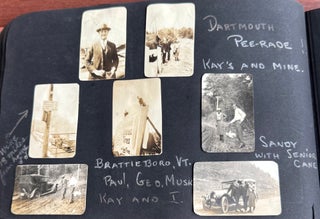 DARTMOUTH
PEE-RADE!
KAY'S AND MINE.
SANDY
WITH SENIOR
CANE
BRATTLEBORO, VT.
PAUL, GEO, MUSK
KAY AND I.